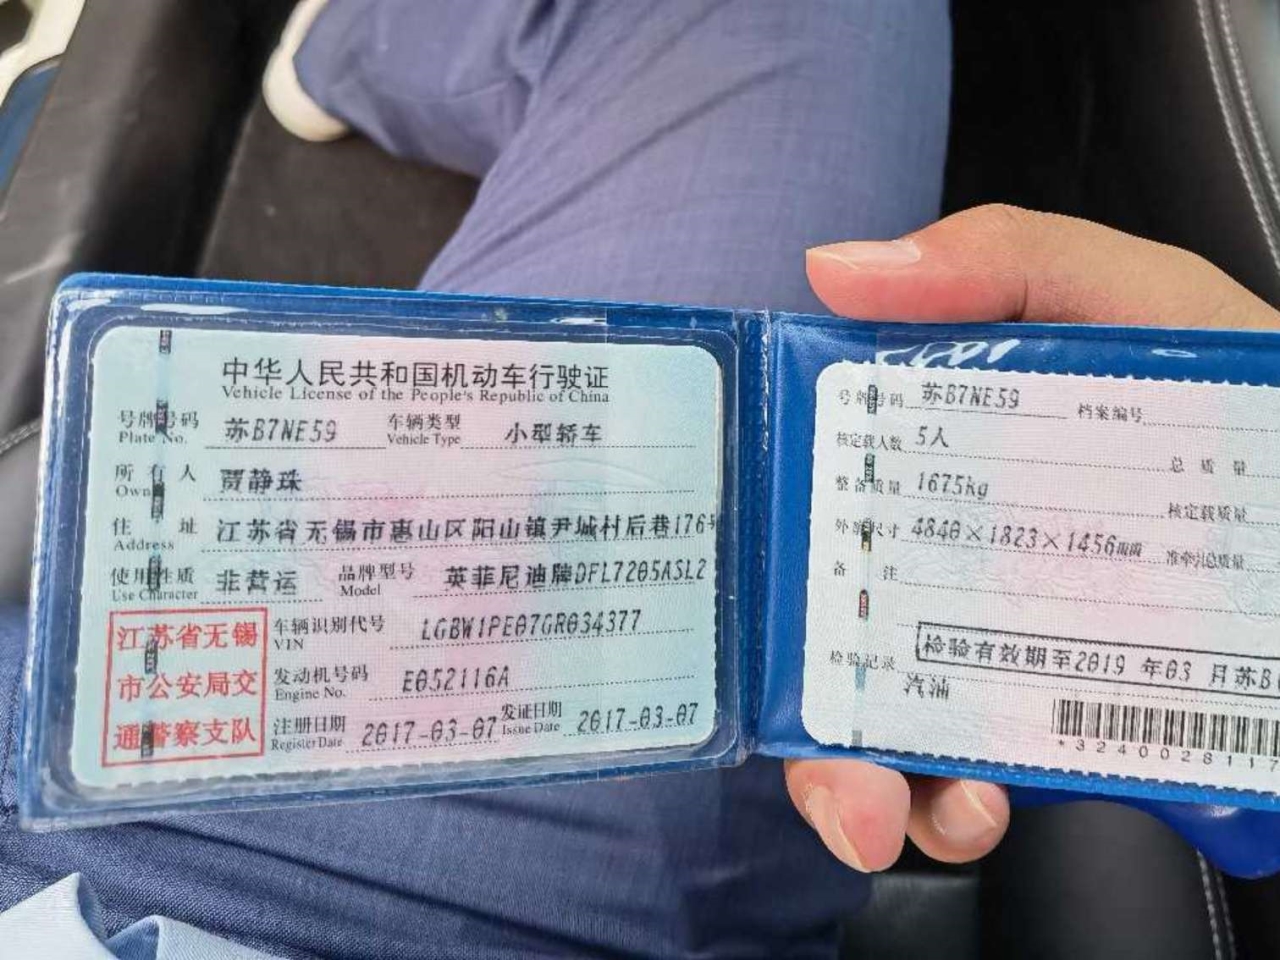 中华人民共和国机动车行驶证
Vehicle License of the People's Republic of China
号牌号码 苏B7NE59 车辆类型 小型轿车
Plate No. Vehicle Type
所有人 贾静珠
Owner
住址 江苏省无锡市惠山区阳山镇尹城村后巷176号
Address
使用性质 非营运 品牌型号 英菲尼迪牌DFL7205ASL2
Use Character Model
江苏省无锡
市公安局交
通警察支队
车辆识别代号 LGBW1PE07GR034377
VIN
发动机号码 E052116A
Engine No.
注册日期 2017-03-07 发证日期 2017-03-07
Register Date Issue Date
号牌号码 苏B7NE59 档案编号
核定载人数 5人 总质量
整备质量 1675kg 核定载质量
外廓尺寸 4840×1823×1456mm 准牵引总质量
备注
检验记录 检验有效期至2019年03月苏B
汽油
*3240028117